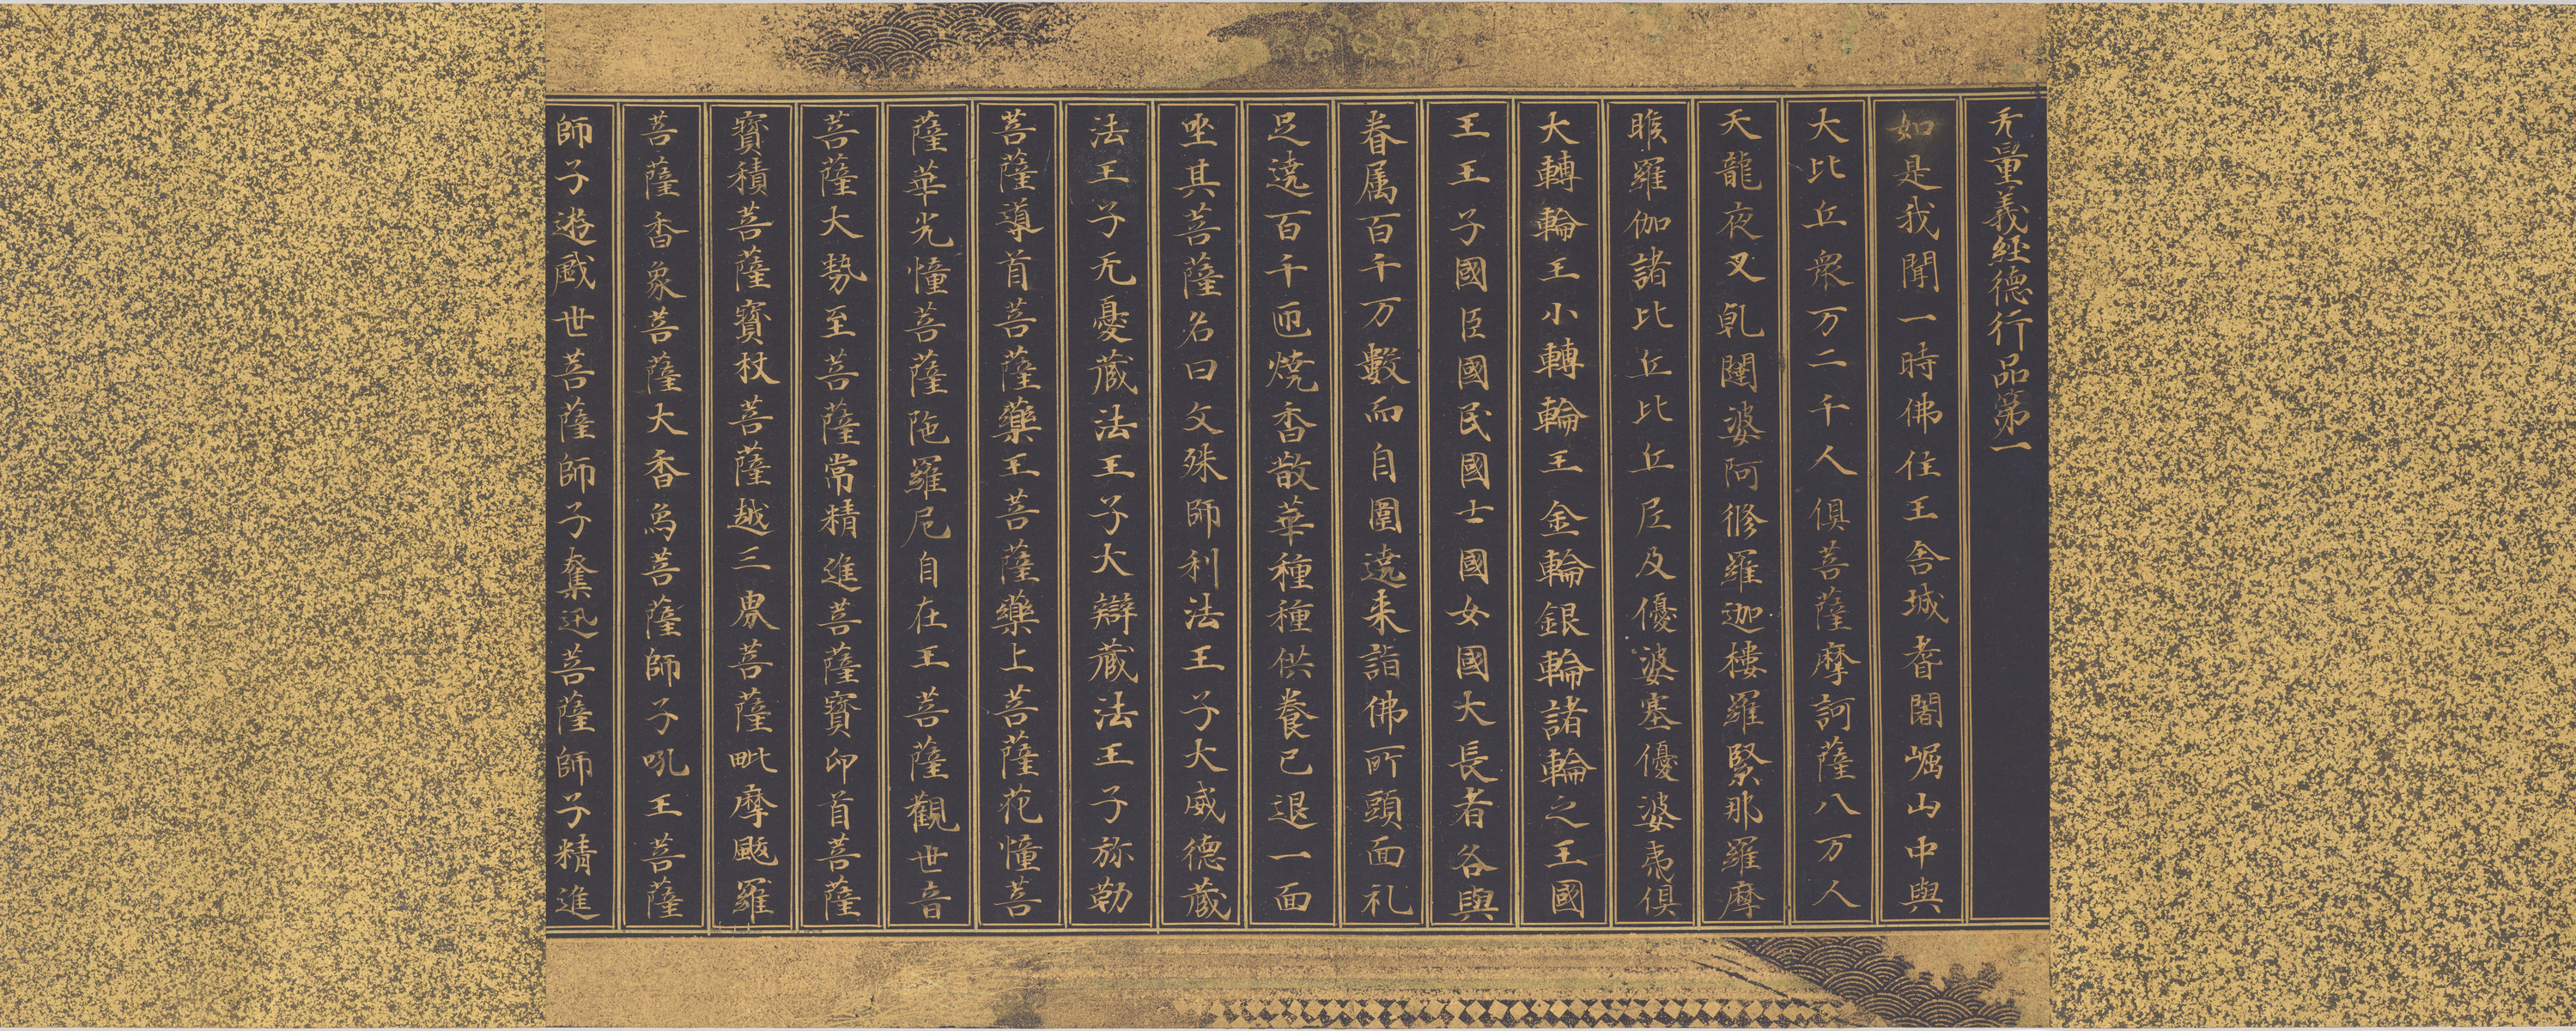 无量義經德行品第一
如是我聞一時佛住王舍城耆闍崛山中與
大比丘衆万二千人俱菩薩摩訶薩八万人
天龍夜叉乹闥婆阿脩羅迦樓羅緊那羅摩
睺羅伽諸比丘比丘尼及優婆塞優婆夷俱
大轉輪王小轉輪王金輪銀輪諸輪之王國
王王子國臣國民國士國女國大長者各與
眷属百千万數而自圍遶来詣佛所頭面礼
足遶百千迊燒香散華種種供養已退一面
坐其菩薩名曰文殊師利法王子大威德藏
法王子无憂藏法王子大辯藏法王子弥勒
菩薩導首菩薩藥王菩薩藥上菩薩花憧菩
薩華光憧菩薩陁羅尼自在王菩薩觀世音
菩薩大勢至菩薩常精進菩薩寶印首菩薩
寶積菩薩寶杖菩薩越三界菩薩毗摩颰羅
菩薩香象菩薩大香烏菩薩師子吼王菩薩
師子遊戲世菩薩師子奮迅菩薩師子精進